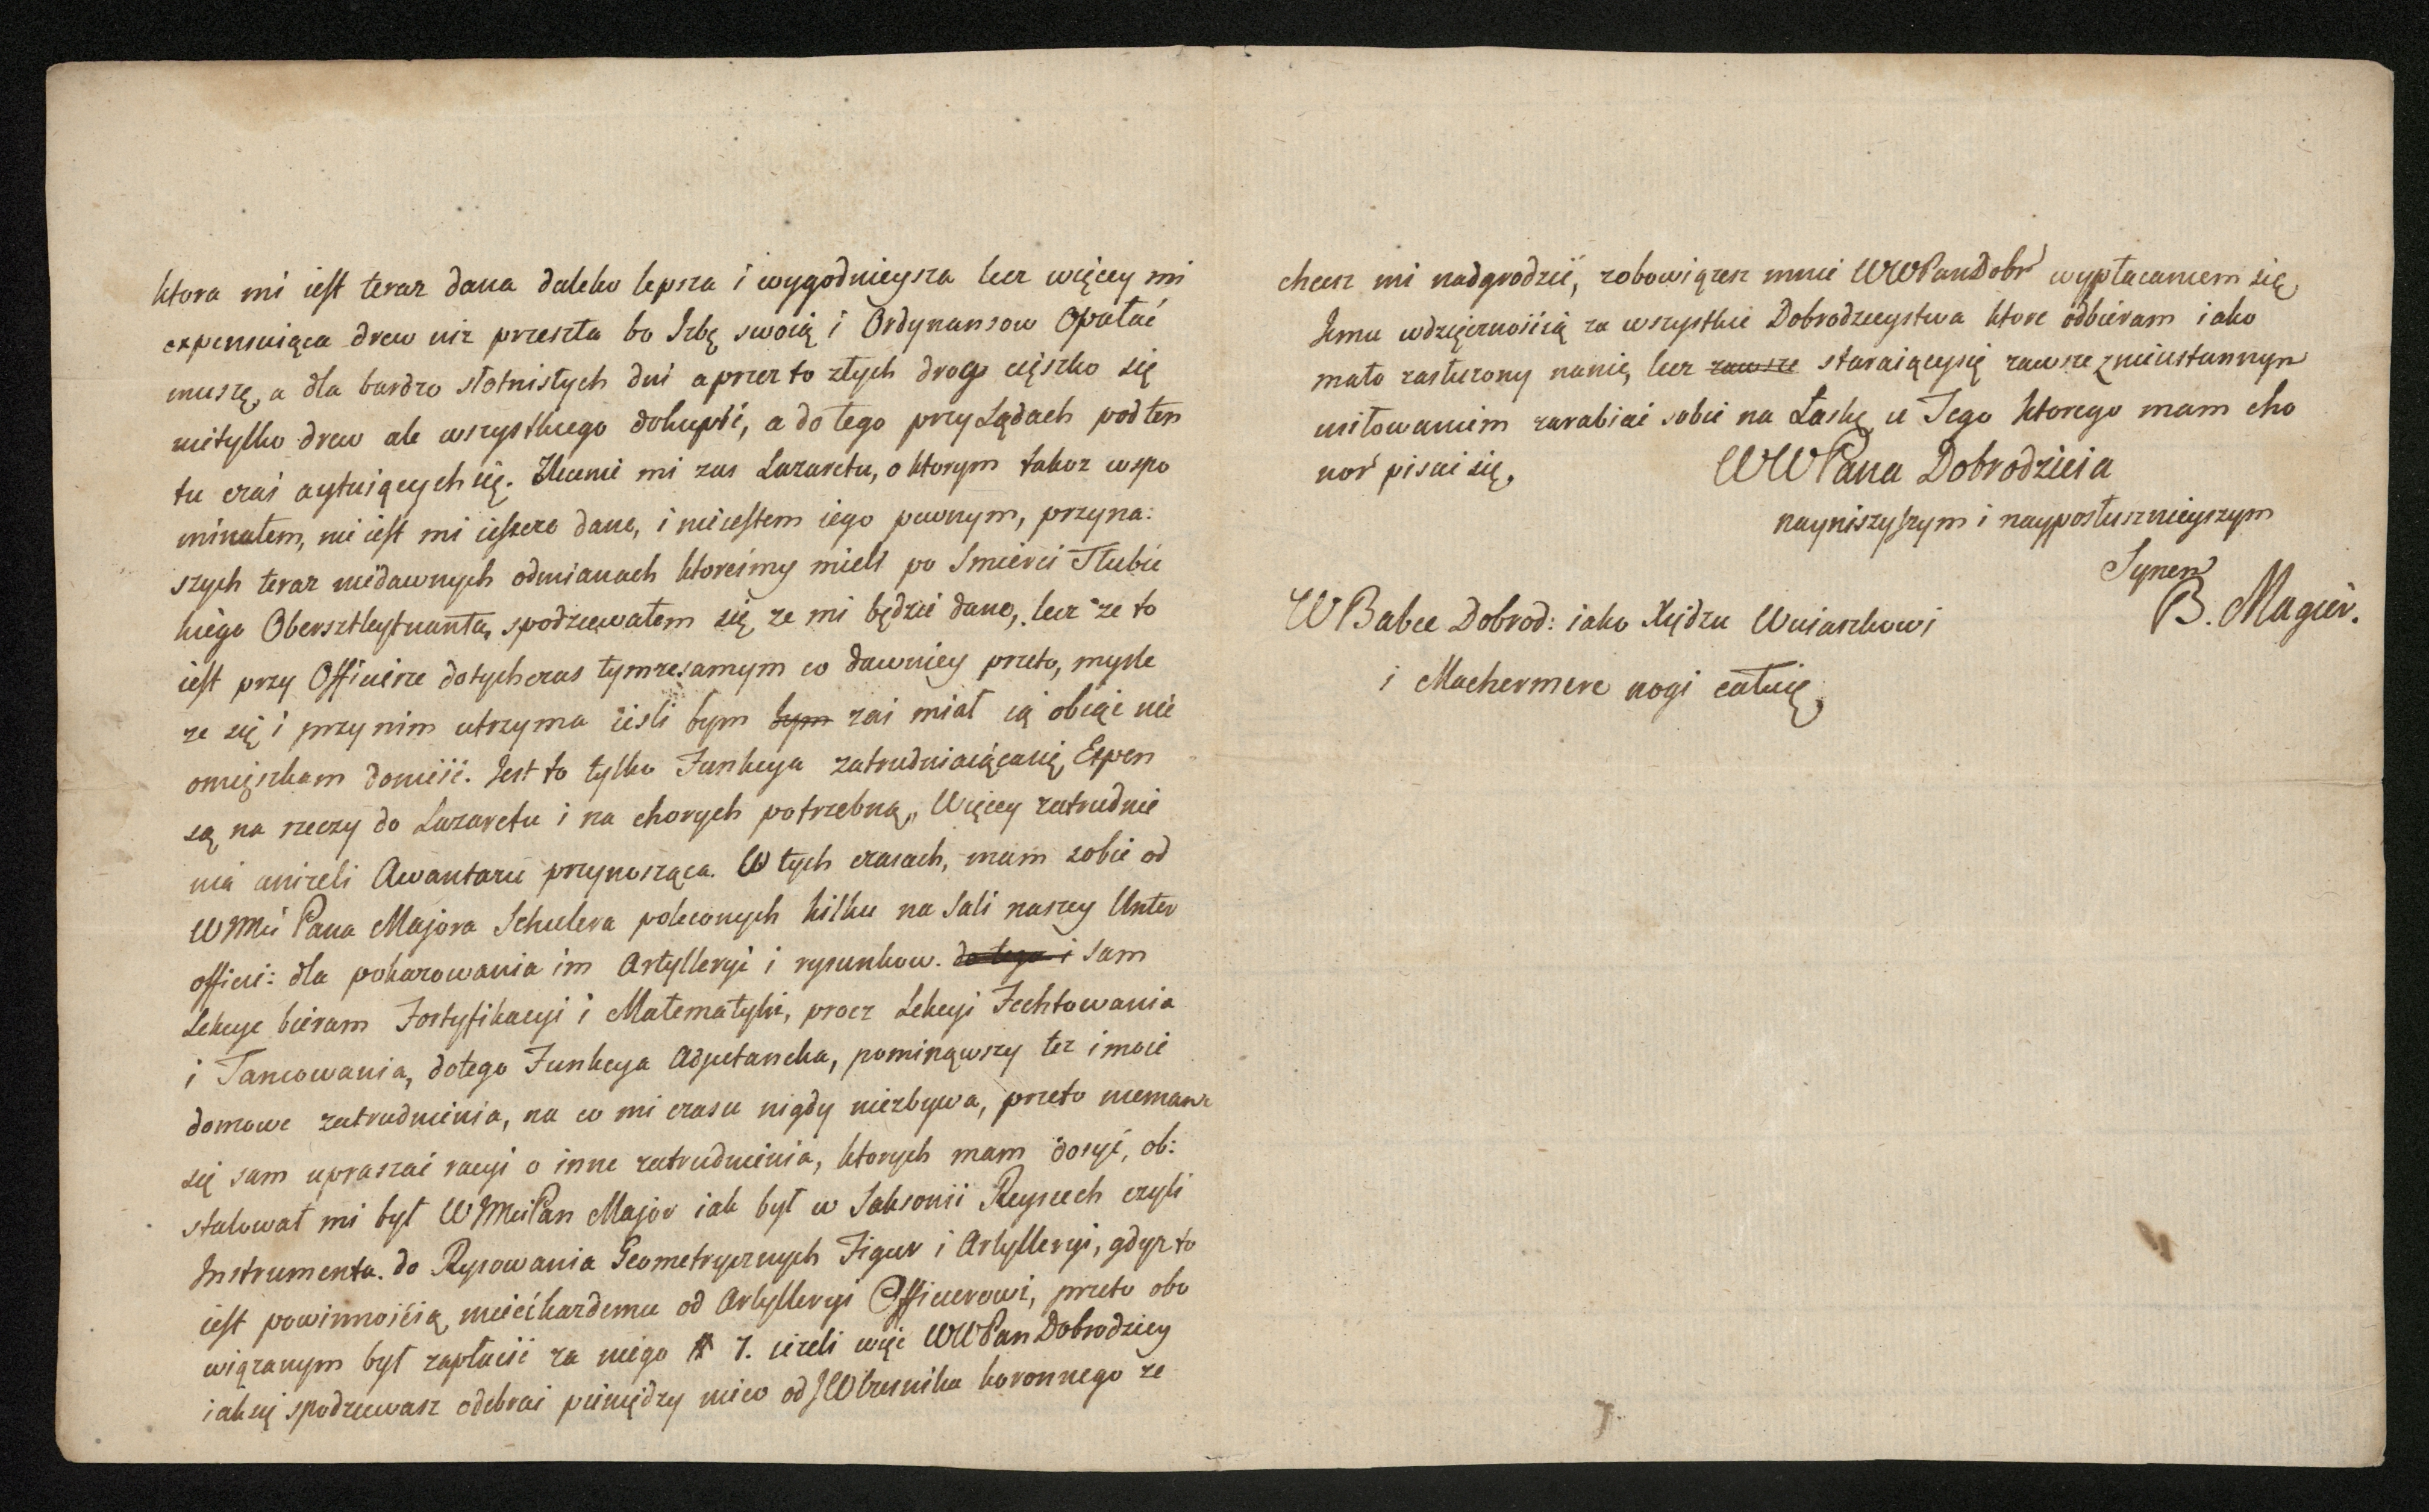 ktora mi iest teraz dana daleko lepsza i wygodnieysza lecz więcey mi
expensuiąca drew niz przeszła bo Izbę swoią i Ordynansow Opałać
muszę, a dla bardzo słotnistych dni a przez to złych drog ciężko się
nietylko drew ale wszystkiego dokupić, a do tego przy Lądach pod ten
tu czas agituiących się. Zlecenie mi zas Lazaretu, o ktorym takoz wspo
minałem, nie iest mi ieszcze dane, i nieiestem iego pewnym, przy na:
szych teraz niedawnych odmianach ktoreśmy mieli po Smierci Tłubic
kiego Obersztleytnanta, spodziewałem się ze mi będzie dane, lecz ze to
iest przy Officierze dotychczas tymze samym co dawniey przeto, mysle
ze się i przy nim utrzyma iesli bym ~~bym~~ zas miał ią obiąć nie
omieszkam donieść. Jest to tylko Funkcya zatrudniaiącasię Expen
są na rzeczy do Lazaretu i na chorych potrzebną, Więcey zatrudnie
nia anizeli Awantazu przynosząca. W tych czasach, mam sobie od
WMci Pana Majora Schulera poleconych kilku na Sali naszey Unter
offici: dla pokazowania im Artylleryi i rysunkow. ~~do tego i~~ sam
Lekcye bieram Fortyfikacyi i Matematyki, procz Lekcyi Fechtowania
i Tancowania, dotego Funkcya Adjutancka, pominąwszy tez i moie
domowe zatrudnienia, na co mi czasu nigdy niezbywa, przeto niemam
się sam upraszać racyi o inne zatrudnienia, ktorych mam dosyć, ob:
stalował mi był WMciPan Major iak był w Saksonii Reyscech czyli
Instrumenta do Rysowania Geometrycznych Figur i Artylleryi, gdyz to
iest powinnością mieć kazdemu od Artylleryi Officierowi, przeto obo
wiązanym był zapłacić za niego # 7. iezeli więc WWPan Dobrodziey
iaksię spodziewasz odebrać pieniędzy nieco od JW Czesnika koronnego ze
chcesz mi nadgrodzić, zobowiązesz mnie WWPanDobr wypłacaniem się
Jemu wdzięcznością za wszystkie Dobrodzieystwa ktore odbieram iako
mało zasłuzony nanię, lecz ~~zawsze~~ staraiącysię zawsze z nieustannym
usiłowaniem zarabiać sobie na Łaskę u Tego ktorego mam cho
nor pisać się,
WWPana Dobrodzieia
naynizszyszym i nayposłusznieyszym
Synem
B. Magier.
W Babce Dobrod: iako Xiędzu Wuiaszkowi
i Machermere nogi całuię,